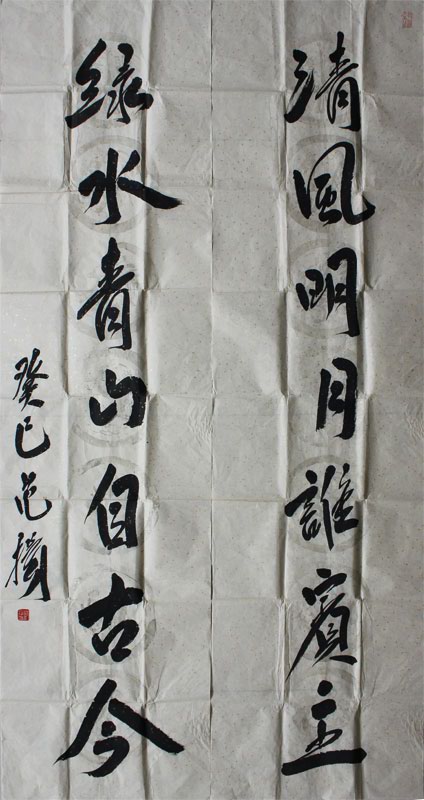 清風明月誰賓主
绿水青山自古今
癸巳范